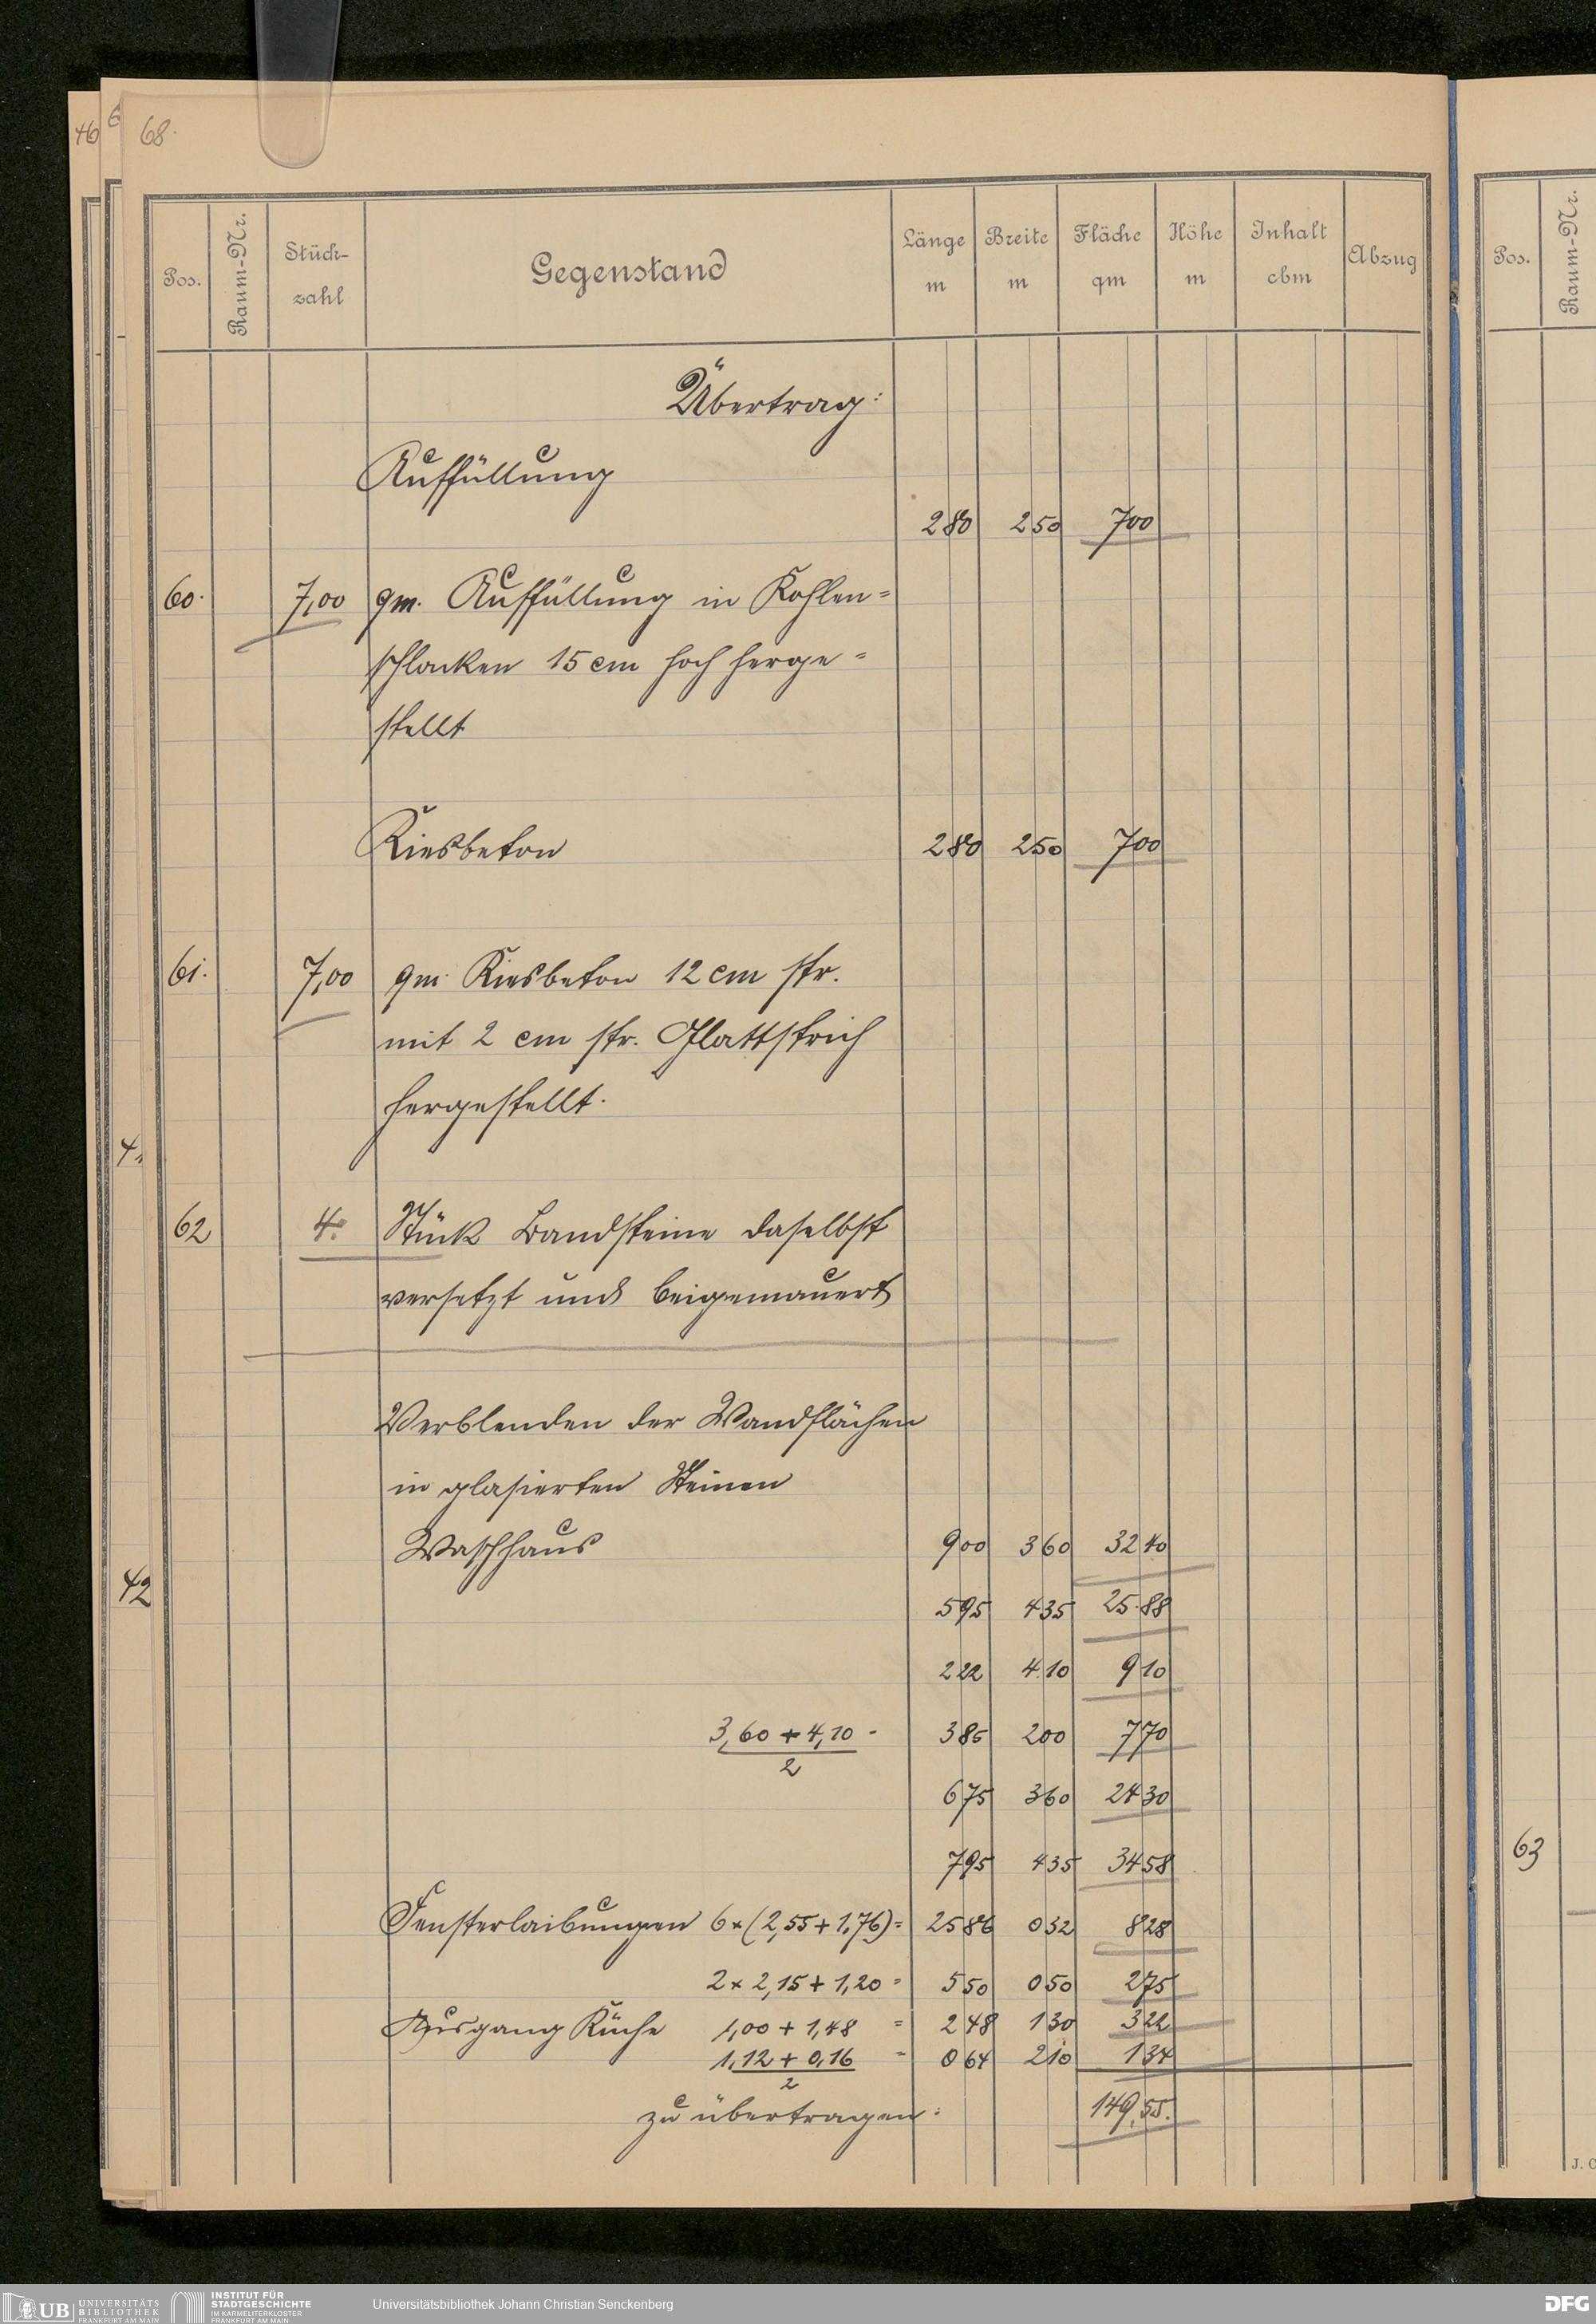 46
6
68.
Pos. Raum-Nr. Stück-zahl Gegenstand Länge m Breite m Fläche qm Höhe m Inhalt cbm Abzug
Pos. Raum-Nr.
Übertrag:
Auffüllung
2 80 2 50 7 00
60. 7,00 qm. Auffüllung in Kohlen=
schlacken 15 cm hoch herge=
stellt
Kiesbeton 2 80 2 50 7 00
61. 7,00 qm. Kiesbeton 12 cm str.
mit 2 cm str. Glattstrich
hergestellt.
4.
62 4. Stück Bandsteine daselbst
versetzt und beigemauert
Verblenden der Wandflächen
in glasierten Steinen
Waschhaus 9 00 3 60 32 40
42
5 95 4 35 25.88
2 22 4.10 9 10
3,60 + 4,10 - 3 85 2 00 7 70
2
6 75 3 60 24 30
7 95 4 35 34 58
63
Fensterlaibungen 6 x (2,55 + 1,76) = 25 86 0 32 8 28
2 x 2,15 + 1,20 = 5 50 0 50 2 75
Ausgang Küche 1,00 + 1,48 = 2 48 1 30 3 22
1,12 + 0,16 = 0 64 2 10 1 34
2
zu übertragen: 149,55.
J. C
UB UNIVERSITÄTS
BIBLIOTHEK
FRANKFURT AM MAIN
INSTITUT FÜR
STADTGESCHICHTE
IM KARMELITERKLOSTER
FRANKFURT AM MAIN
Universitätsbibliothek Johann Christian Senckenberg
DFG